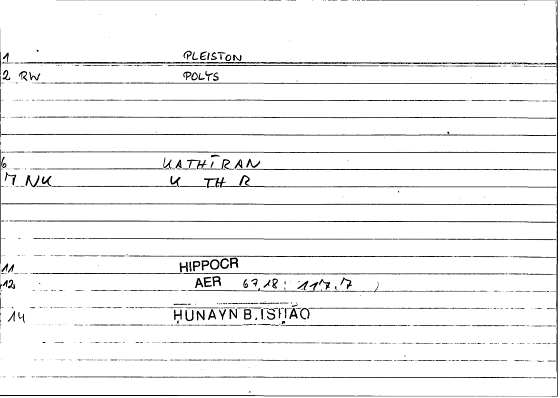 1 PLEISTON
2 RW POLYS
6 KATHĪRAN
7 NK K TH R
11 HIPPOCR
12 AER 67,18 : 117,7 )
14 ḤUNAYN B. ISḤĀQ